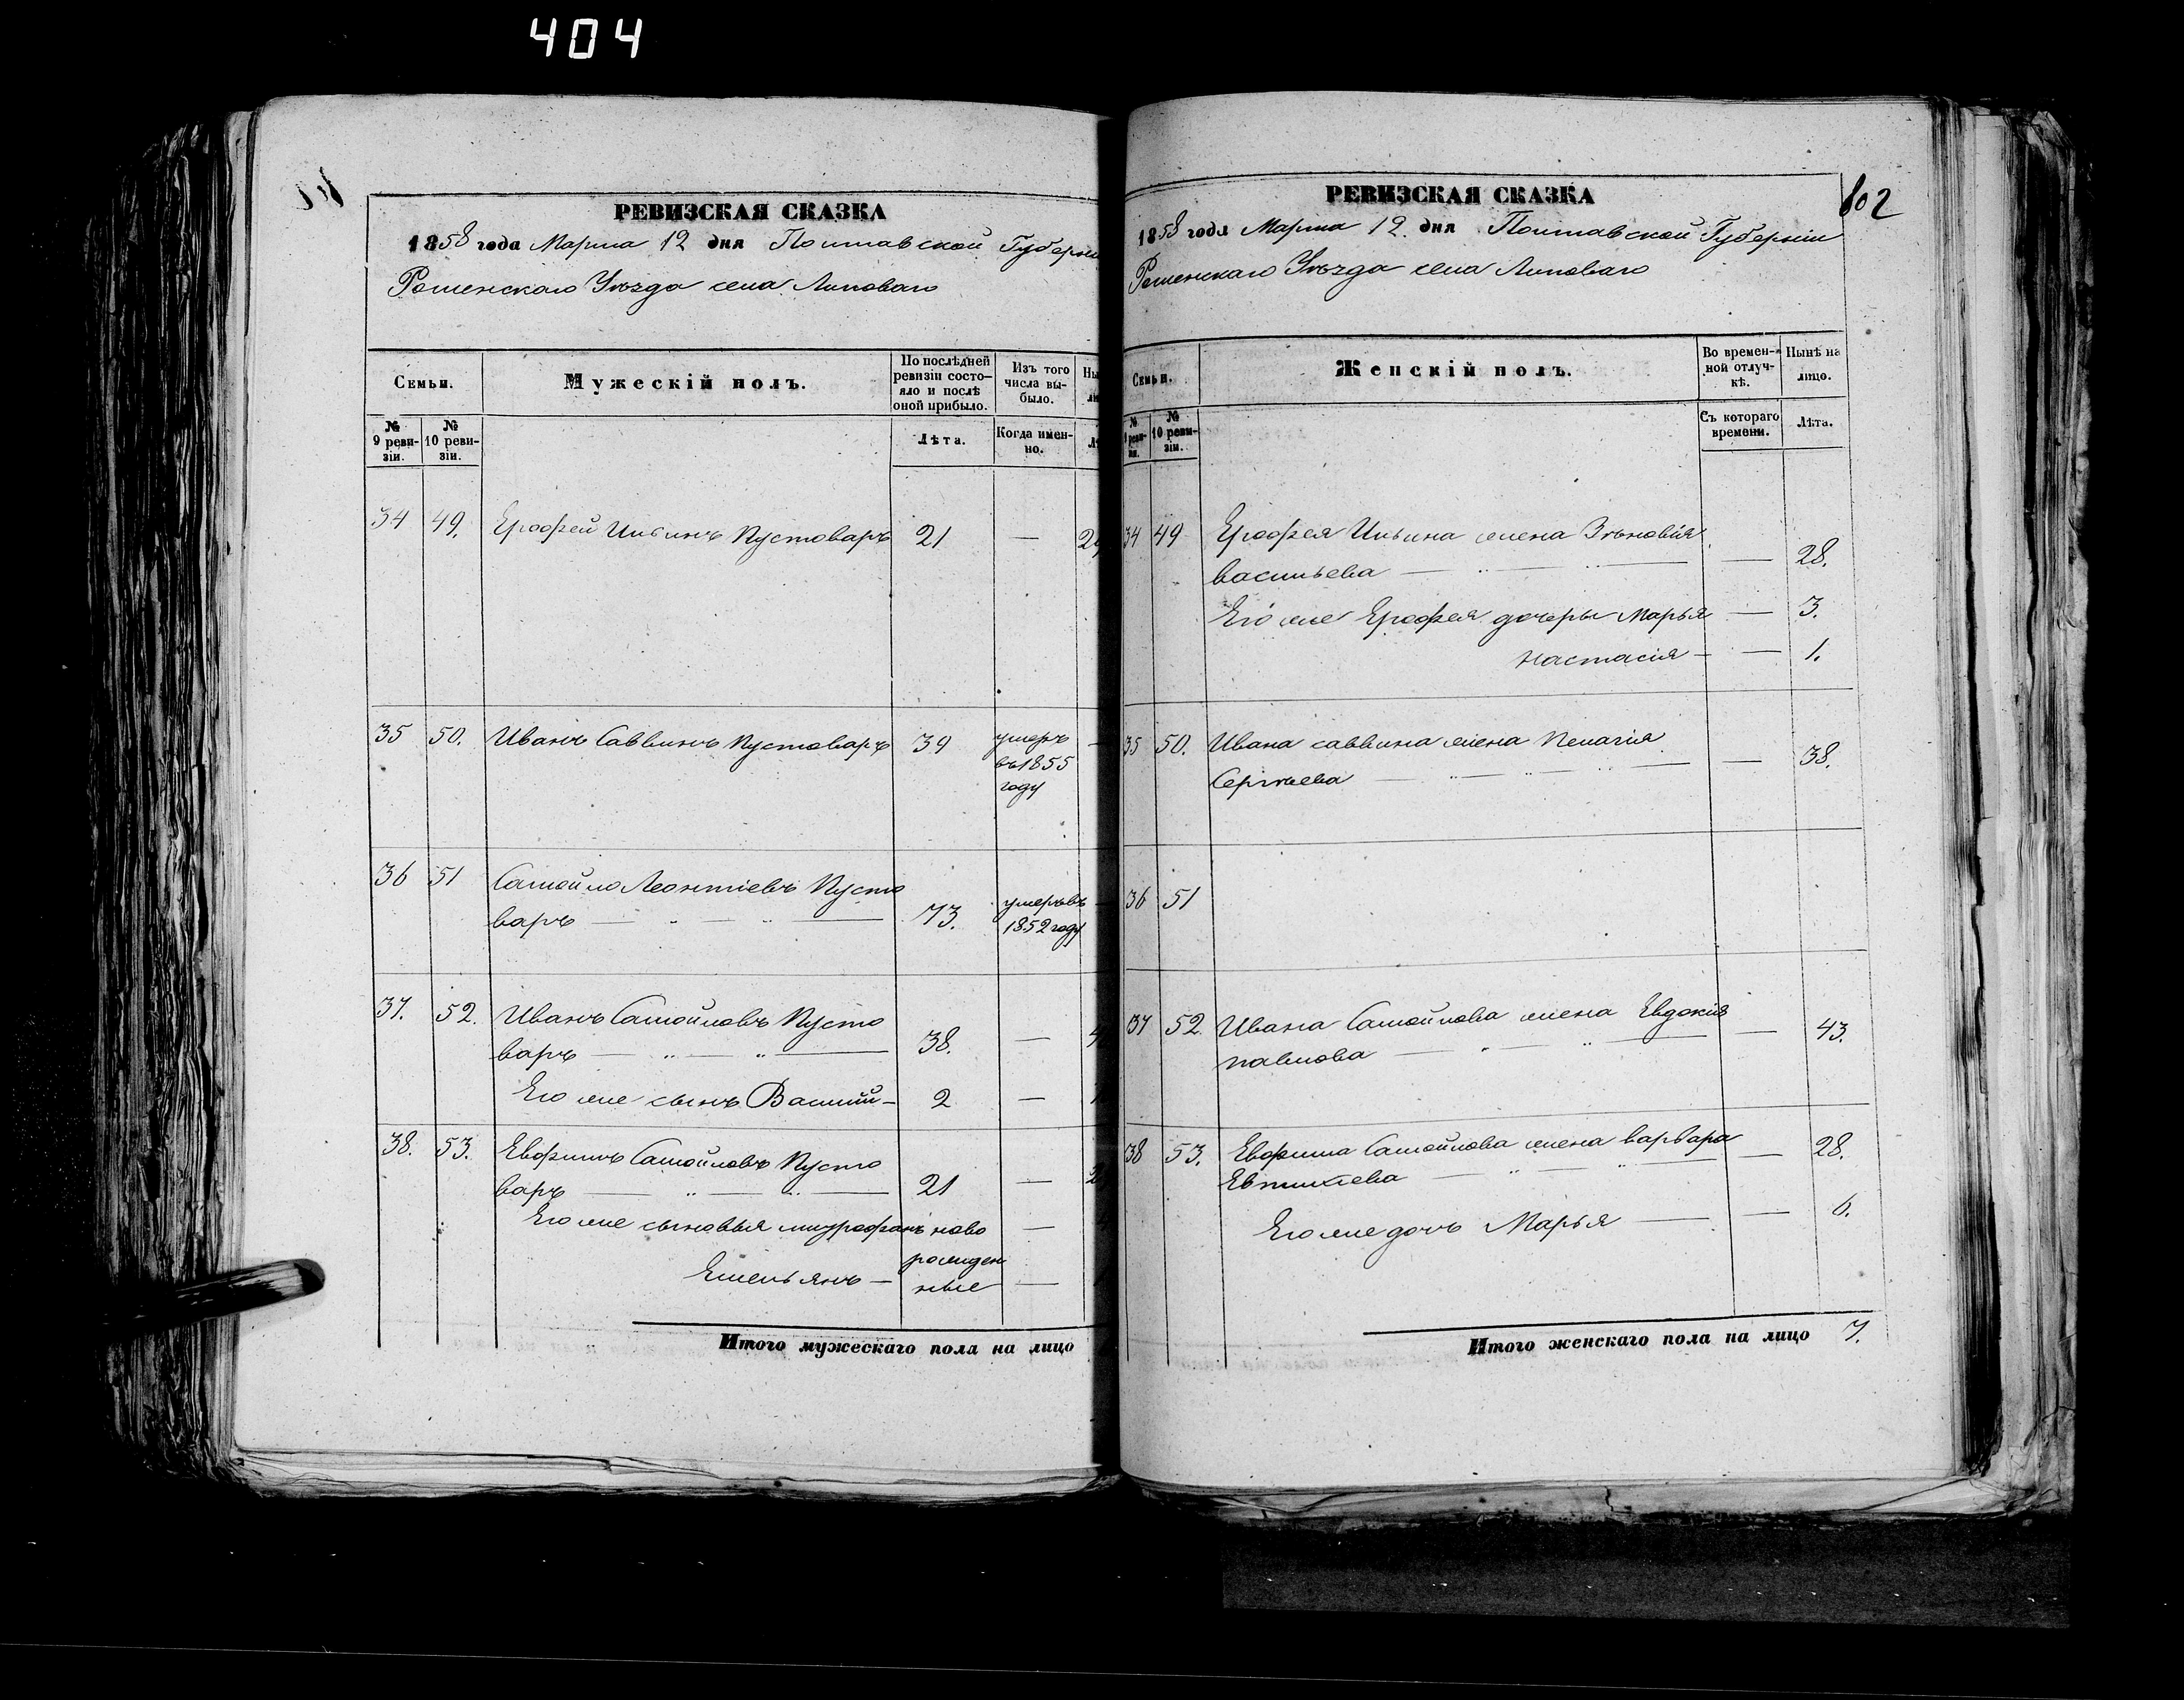 404
РЕВИЗСКАЯ СКАЗКА
1858 года Марта 12 дня Полтавской Губерніи
Роменскаго Уѣзда села Липоваго
Семьи.
Мужескій полъ.
По послѣдней ревизіи состо-
яло и послѣ
оной прибыло.
Изъ того
числа вы-
было.
№ 9 реви-
зіи.
№ 10 реви-
зіи.
Лѣта.
Когда имен-
но.
34 49. Ерофей Ильинъ Пустоваръ 21 —
35 50. Иванъ Саввинъ Пустоваръ 39 умеръ
въ 1855
году
36 51 Самойло Леонтіевъ Пусто
варъ — " — " — 73. умеръ въ
1852 году
37. 52. Иванъ Самойловъ Пусто
варъ — " — " — 38. —
Его же сынъ Василій — 2 —
38. 53. Евфимъ Самойловъ Пусто
варъ — " — " — 21 —
Его же сыновья митрофанъ ново —
рожден
Емельянъ — ные —
Итого мужескаго пола на лицо
РЕВИЗСКАЯ СКАЗКА
602
1858 года Марта 12. дня Полтавской Губерніи
Роменскаго Уѣзда села Липоваго
Семьи.
Женскій полъ.
Во времен-
ной отлуч-
кѣ.
Нынѣ на
лицо.
№ 9 реви-
зіи.
№ 10 реви-
зіи.
Съ котораго
времени.
Лѣта.
34 49 Ерофея Ильина жена Зѣновія
васильева — " — " — — 28.
Его же Ерофея дочеры Марья — 3.
Настасія — — 1.
35 50. Ивана саввина жена Пелагія
Сергѣева — " — " — " — — 38.
36 51
37 52. Ивана Самойлова жена Евдокія
павлова — " — " — — 43.
38 53. Евфима Самойлова жена варвара
Евтихіева — " — " — — 28.
Его же дочь Марья — — 6.
Итого женскаго пола на лицо 7.